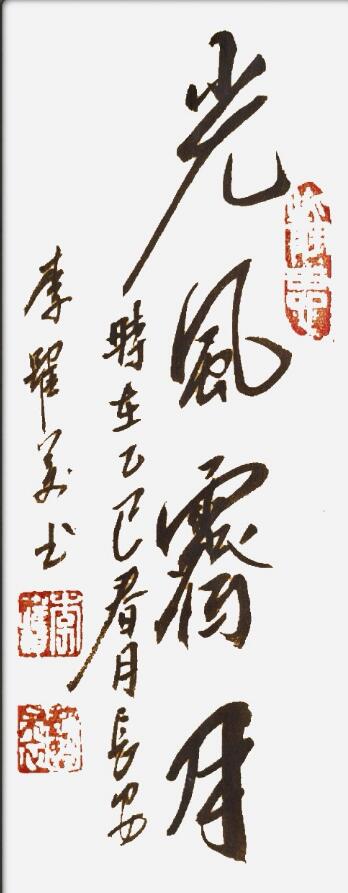 光風霽月
時在乙巳春月長安
李躍美书